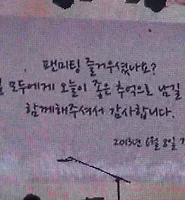 팬미팅 즐거우셨나요?
모두에게 오늘이 좋은 추억으로 남길
함께해주셔서 감사합니다.
2013년 6월 8일